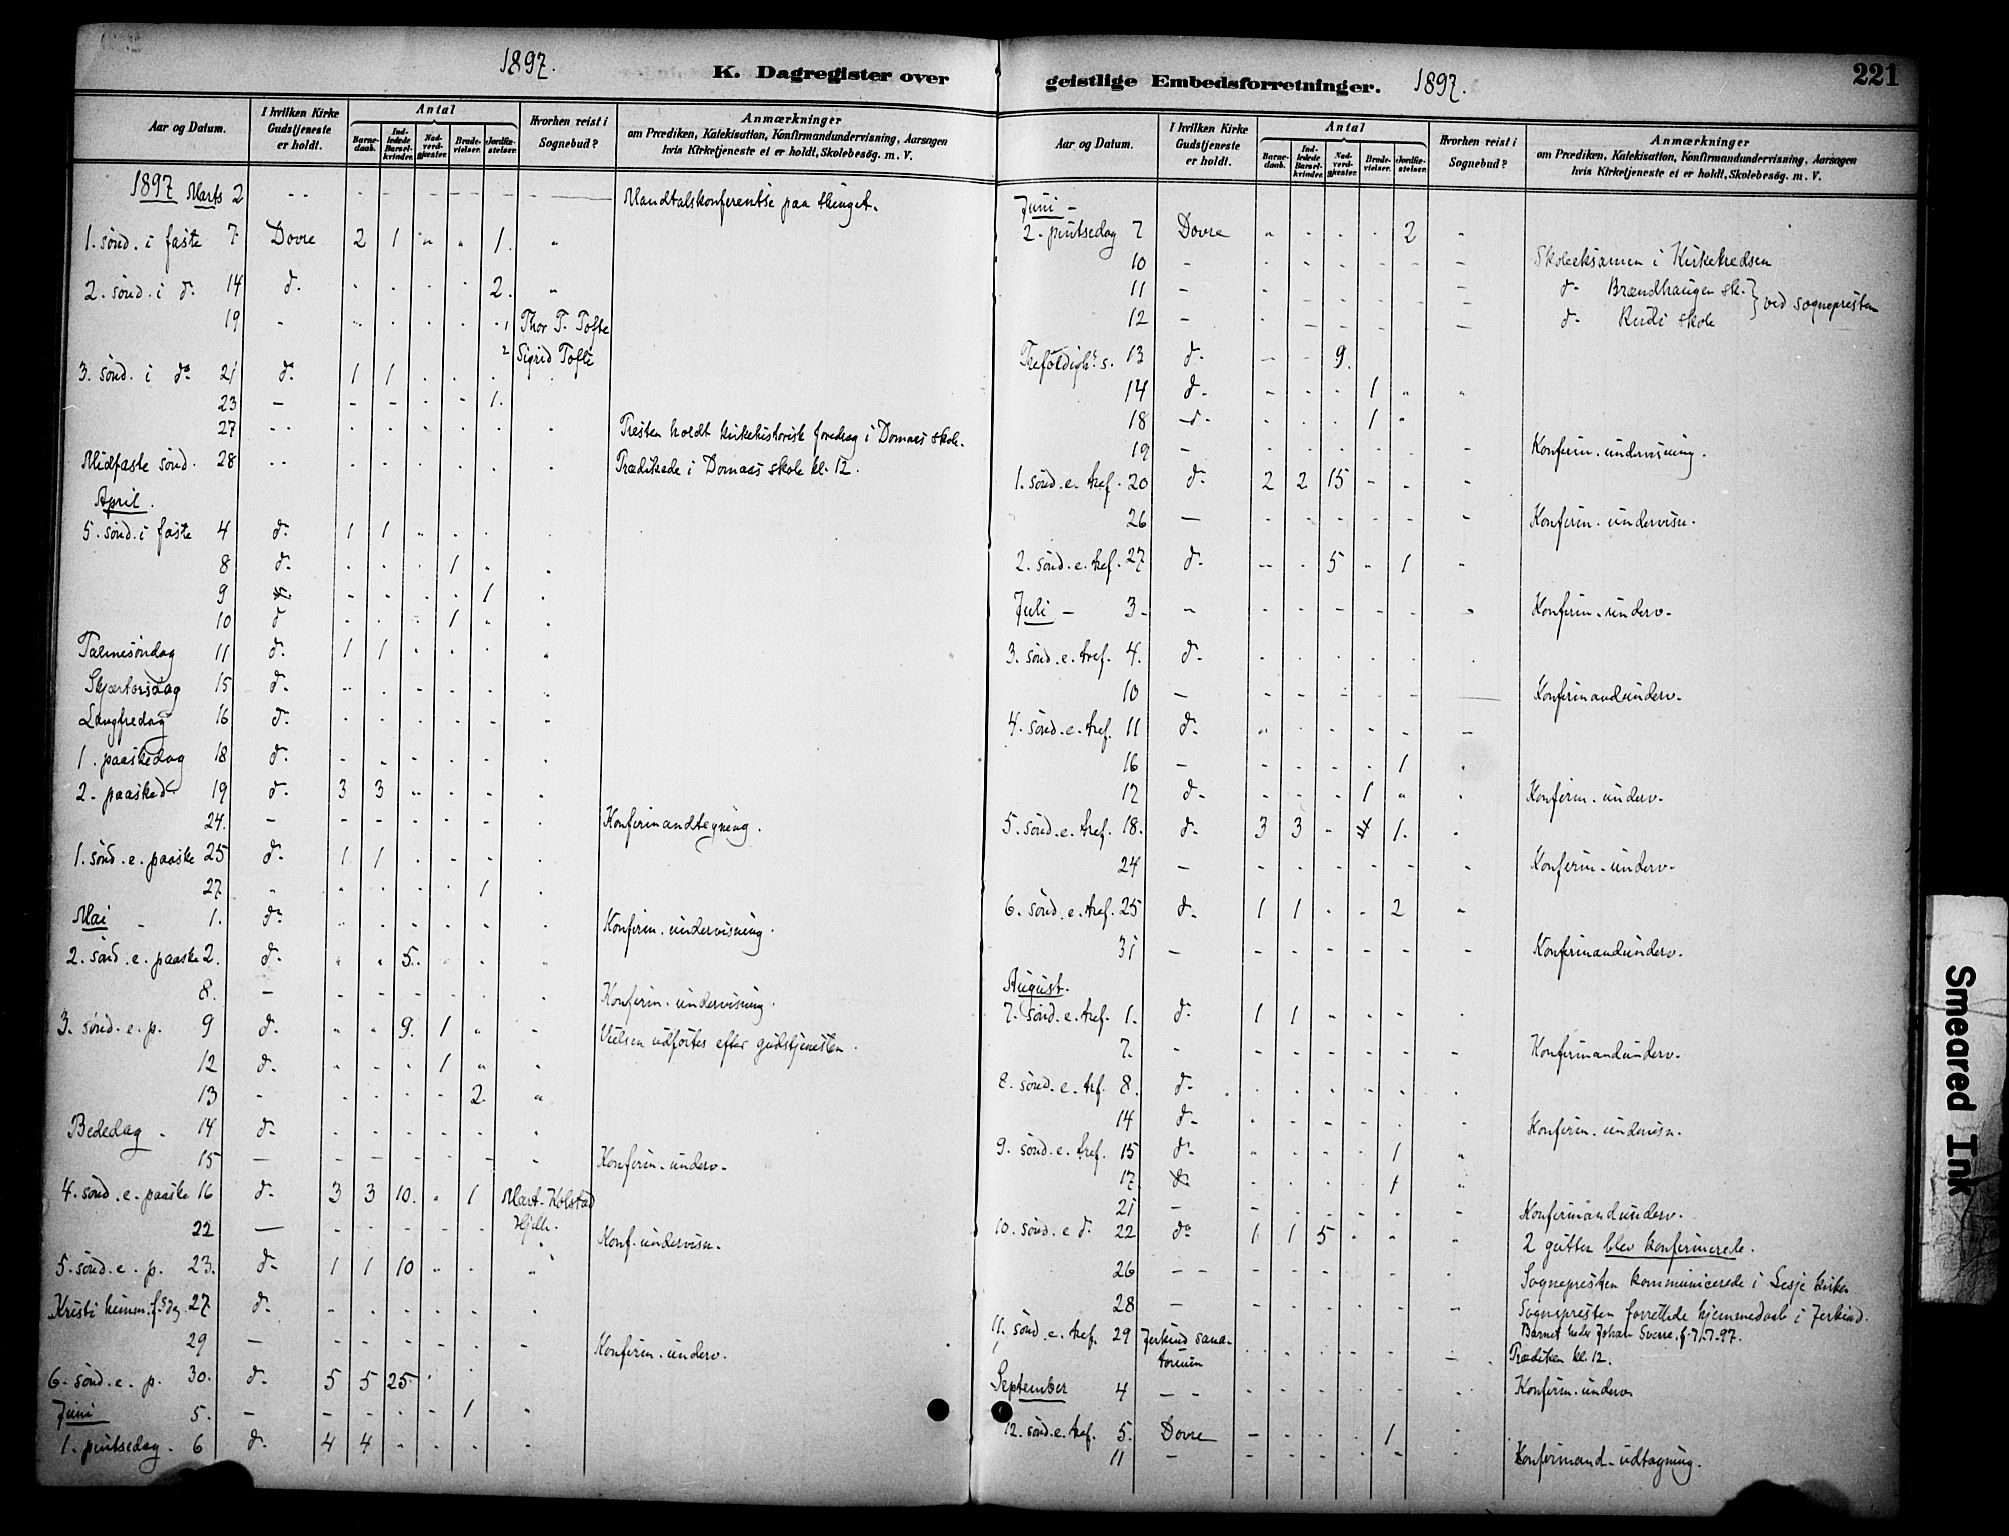 1897.
K. Dagregister over
Aar og Datum. I hvilken Kirke Gudstjeneste er holdt. Antal Barnedaab. Indledede Barselkvinder. Nadverdgjester. Brudevielser. Jordfæstelser. Hvorhen reist i Sognebud? Anmærkninger om Prædiken, Katekisation, Konfirmandundervisning, Aarsagen hvis Kirketjeneste ei er holdt, Skolebesøg. m. V.
1897 Marts 2 - - - - - - - - Mandtalskonferentse paa thinget.
1. sønd. i faste 7 Dovre 2 1 " " 1. "
2. sønd. i do 14 do - - - - 2. "
19 - - - - - 1 Thor T. Tofte
2 Sigrid Tofte
3. sønd. i do 21 do 1 1 - - -
23 - - - - - 1.
27 - - - - - - - - Presten holdt kirkehistorisk foredrag i Domaas skole.
Midfaste sønd. 28 - - - - - - - - Prædikede i Domaas skole kl. 12.
April.
5. sønd. i faste 4 do 1 1 - - - -
8 do - - - 1 - -
9 do - - - - 1 -
10 do - - - 1 - -
Palmesøndag 11 do 1 1 - - - "
Skjærtorsdag 15 do - - - - - -
Langfredag 16 do - - - - - -
1. paaskedag 18 do - - - - - -
2. paasked. 19 do 3 3 - - - -
24. - - - - - - - Konfirmandtegning.
1. sønd. e. paaske 25 do 1 1 - - - -
27 " - - - - 1 -
Mai - 1. do - - - - - - Konfirm. undervisning.
2. sønd. e. paaske 2. do " " 5. - - -
8. - - - - - - - Konfirm. undervisning.
3. sønd. e. p. 9 do " " 9. 1 " - Vielsen udførtes efter gudstjenesten.
12 do - - - 1 " -
13 - - - - - 2. "
Bededag - 14 do - - - - - -
15 - - - - - - - Konfirm. underv.
4. sønd. e. paaske 16 do 3 3 10. " 1 Mart. Kolstad
22 - - - - - - Hjelle. Konf. undervisn.
5. sønd. e. p. 23. do 1 1 10 - - -
Kristi himm.f.s dg. 27 do - - - - - -
29 - - - - - - - Konfirm. underv.
6. sønd. e. p. 30. do 5 5 25 -
Juni 5. - - - - - 1 -
1. pintsedag. 6 do 4 4 - - - -
geistlige Embedsforretninger. 1897.
221
Aar og Datum. I hvilken Kirke Gudstjeneste er holdt. Antal Barnedaab. Indledede Barselkvinder. Nadverdgjester. Brudevielser. Jordfæstelser. Hvorhen reist i Sognebud? Anmærkninger om Prædiken, Katekisation, Konfirmandundervisning, Aarsagen hvis Kirketjeneste ei er holdt, Skolebesøg. m. V.
Juni -
2. pintsedag 7 Dovre " - - - 2 -
10 - - - - - - - Skoleeksamen i Kirkekredsen
11 - - - - - - - do Brændhaugen sk. } ved sognepresten
12 - - - - - - - do Rudi skole
Trefoldigh.s s. 13 do - - 9.
14 do - - - 1 " "
18 do - - - 1 "
19 - - - - - - - Konfirm. undervisning.
1. sønd. e. tref. 20 do 2 2 15 - - -
26 - - - - - - - Konfirm. undervisn.
2. sønd. e. tref. 27 do - - 5 " 1 "
Juli - 3. - - - - - - - Konfirm. underv.
3. sønd. e. tref. 4. do - - - - - -
10 - - - - - - - Konfirmandunderv.
4. sønd. e. tref. 11 do " - - - - -
16 - - - - - 1 -
17 do - - - 1 " - Konfirm. underv.
5. sønd. e. tref. 18. do 3 3 - 1. -
24 - - - - - - - Konfirm. underv.
6. sønd. e. tref. 25 do 1 1 - - 2 "
31 - - - - - - - Konfirmandunderv.
August.
7. sønd. e. tref. 1. do 1 1 - - - -
7. - - - - - - - Konfirmandunderv.
8. sønd. e. tref. 8. do - - - - - -
14 do - - - - - - Konfirm. undervisn.
9. sønd. e. tref. 15 do - - - - 1 "
17 do - - - - 1 "
21 - - - - - - - Konfirmandunderv.
10. sønd. e. do 22 do 1 1 5 - - - 2 gutter blev konfirmerede.
26 - - - - - - - - Sognepresten kommunicerede i Lesje kirke.
28 - - - - - - - Sognepresten forrettede hjemmedaab i Jerkind.
Barnet heder Johan Sverre, f. 7/7.97.
11. sønd. e. tref. 29 Jerkind sanatorium - - - - - - Prædiken kl. 12.
September 4 - - - - - - - - Konfirm. underv.
12. sønd. e. tref. 5. Dovre - - - - 1 -
11 - - - - - - - Konfirmand-udtagning.
Smeared Ink